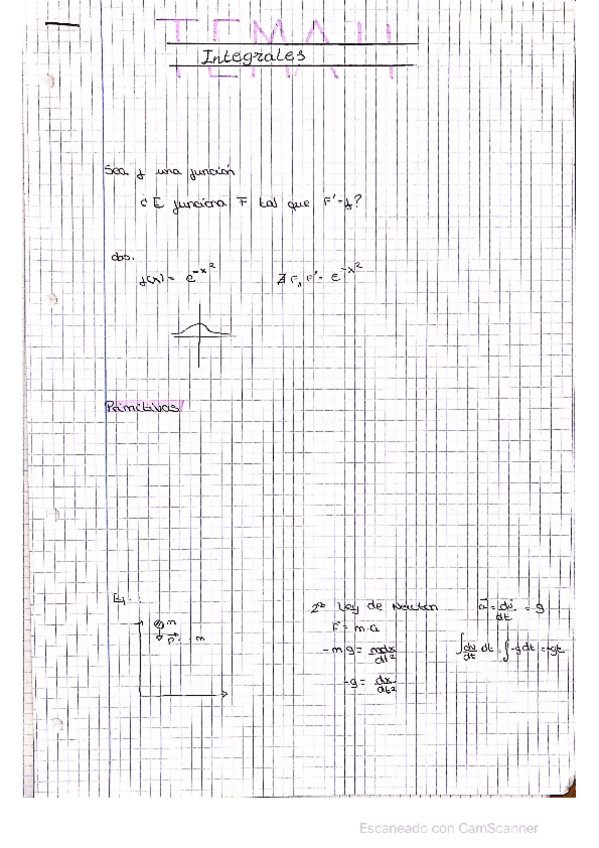 TEMA 4
Integrales
Sea f una función
¿ E funciona F tal que F' = f?
obs.
f(x) = e^-x^2    ∄ F, F' = e^-x^2
Primitivas
Ej.:
m
P
m
2ª Ley de Newton
F = m·a
-mg = mdx/dt^2
-g = dx/dt^2
a = dv/dt = g
∫ dv/dt dt = ∫ -g dt = -gt
Escaneado con CamScanner